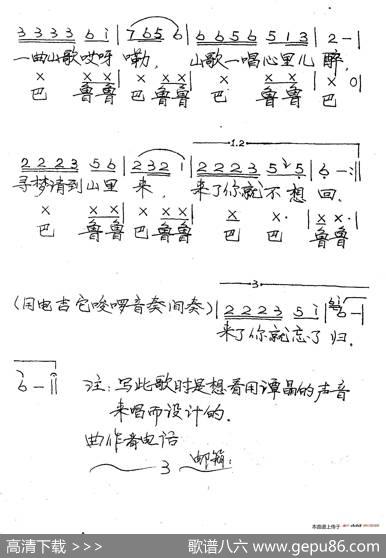 3 3 3 3 6 i | 7 6 5 6 | 6 6 5 6 5 1 3 | 2 - |
一曲山歌哎呀 嘞, 山歌一唱心里儿醉,
X X X | X X X | X X X | X 0 |
巴 鲁鲁 巴 鲁鲁 巴 鲁鲁 巴
1.2
2 2 2 3 5 6 | 2 3 2 1 | 2 2 2 3 5 5 | 6 - :||
寻梦请到山里 来, 来了你就不想 回.
X X X | X X X | X X· | X X· |
巴 鲁鲁 巴 鲁鲁 巴 巴 鲁鲁
3
(用电吉它唆啰音奏间奏) | 2 2 2 3 5 i | 6 - |
来了你就忘了 归.
6 - ||
注: 写此歌时是想着用谭晶的声音
来唱而设计的.
曲作者电话
3 邮箱:
本曲谱上传于
高清下载 >>> 歌谱八六 www.gepu86.com